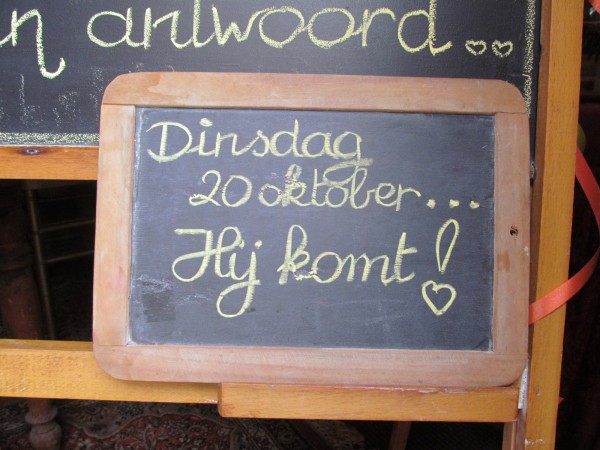 antwoord..
Dinsdag
20 oktober...
Hij komt!